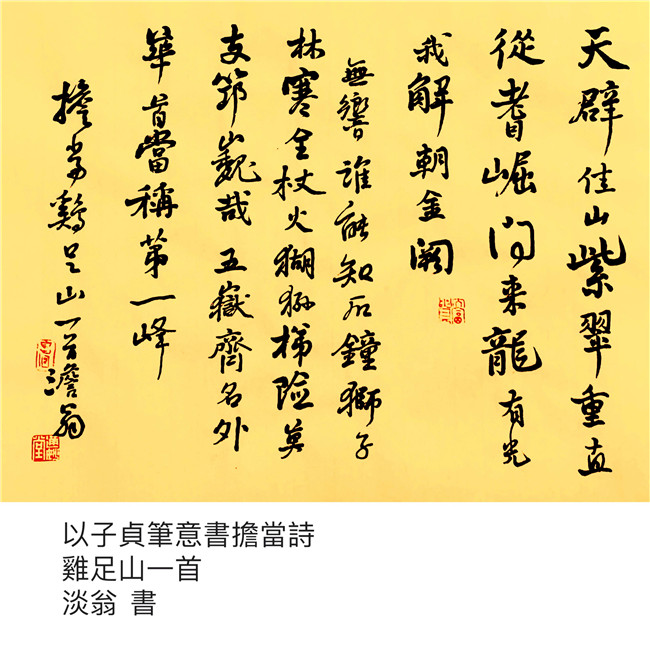 天辟佳山紫翠重直
從耆崛問來龍有光
我解朝金闕
無響誰能知石鐘獅子
林寒全杖火猢猻梯險莫
支筇巍哉五嶽齊名外
華首當稱第一峰
擔當鷄足山一首澹翁
以子貞筆意書擔當詩
雞足山一首
淡翁 書